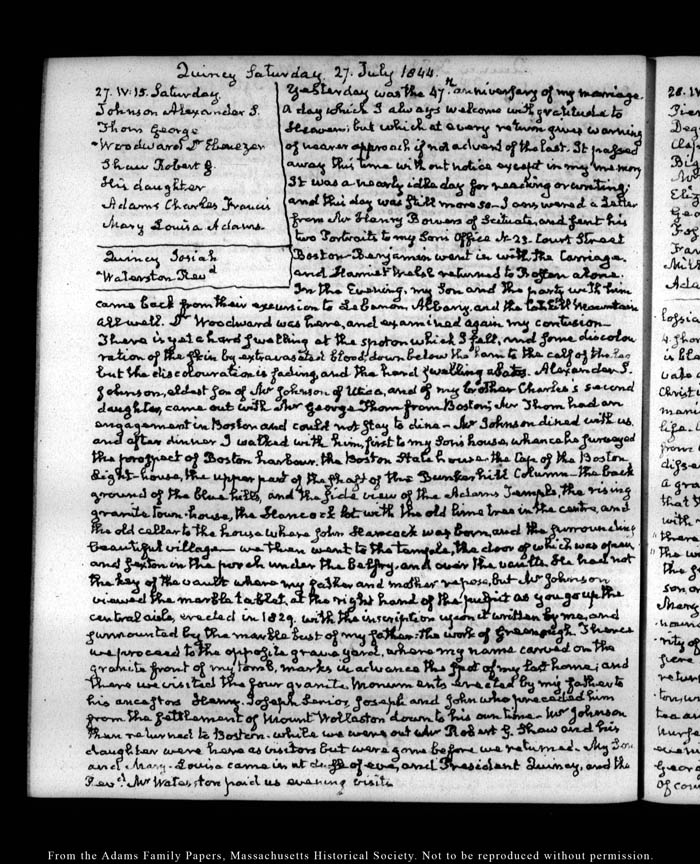 Quincy Saturday 27. July 1844.
27. IV:15. Saturday
Johnson Alexander S.
Thom George
Woodward Dr Ebenezer
Shaw Robert G.
His daughter
Adams Charles Francis
Mary Louisa Adams.
Quincy Josiah
Waterston Revd
Yesterday was the 47th anniversary of my marriage
A day which I always welcome with gratitude to
Heaven; but which at every return gives warning
of nearer approach if not advent of the last. It passed
away this time without notice except in my memory
It was a nearly idle day for reading or writing;
and this day was still more so. I answered a Letter
from Mr Henry Bowers of Scituate, and sent his
two Portraits to my Sons Office N. 23. Court Street
Boston. Benjamin went in with the Carriage.
and Harriet Welsh returned to Boston alone.
In the Evening, my Son and the party with him
came back from their excursion to Lebanon, Albany, and the Catskill Mountain
all well. Dr Woodward was here, and examined again my contusion
There is yet a hard swelling at the spot on which I fell, and some discolou
ration of the skin by extravasated blood, down below the ham to the calf of the leg
but the discolouration is fading, and the hard swelling abates. Alexander S.
Johnson, eldest son of Mr Johnson of Utica, and of my brother Charles's second
daughter, came out with Mr George Thom from Boston; Mr Thom had an
engagement in Boston and could not stay to dine. Mr Johnson dined with us.
and after dinner I walked with him, first to my Son's house, whence he surveyed
the prospect of Boston harbour, the Boston State house the top of the Boston
Light-house, the upper part of the shaft of the Bunker hill Column the back
ground of the blue hills, and the side view of the Adams Temple, the rising
granite town-house, the Hancock lot with the old lime tree in the centre, and
the old cellar to the house where John Hancock was born, and the surrounding
beautiful village we then went to the temple, the door of which was open
and Sexton in the porch under the Belfry, and over the vault. He had not
the key of the vault where my father and mother repose, but Mr Johnson
viewed the marble tablet, at the right hand of the pulpit as you go up the
central aisle, erected in 1829. with the inscription upon it written by me, and
surmounted by the marble bust of my father: the work of Greenough. Thence
we proceed to the opposite grave yard, where my name carved on the
granite front of my tomb, marks in advance the spot of my last home; and
there we visited the four granite Monuments erected by my father to
his ancestors Henry, Joseph Senior, Joseph and John who preceded him
from the settlement of Mount Wollaston down to his own time. Mr Johnson
then returned to Boston. while we were out Mr Robert G. Shaw and his
daughter were here as visitors but were gone before we returned. My Son
and Mary-Louisa came in at dusk of eve, and President Quincy, and the
Revd. Mr Waterston paid us evening visits
From the Adams Family Papers, Massachusetts Historical Society. Not to be reproduced without permission.